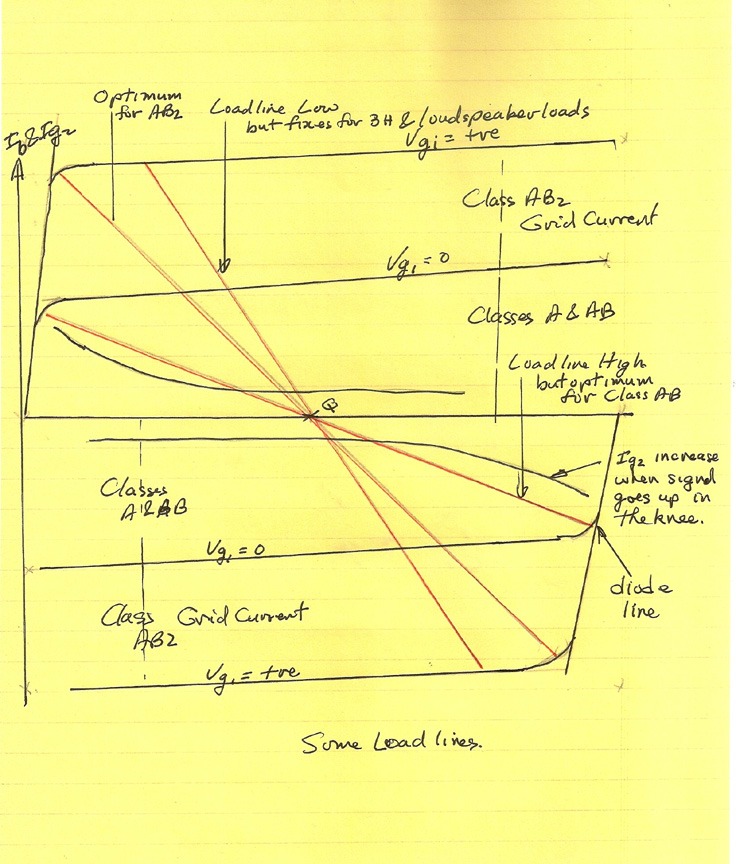 Optimum
for AB2
Loadline Low
but fixes for 3H & loudspeaker loads
Ib & Ig2
Vg1 = +ve
Class AB2
Grid Current
Vg1 = 0
Classes A & AB
Loadline High
but optimum
for Class AB
Q
Ig2 increase
when signal
goes up in
the knee.
Classes
A & AB
Vg1 = 0
diode
line
Class Grid Current
AB2
Vg1 = +ve
Some Load lines.